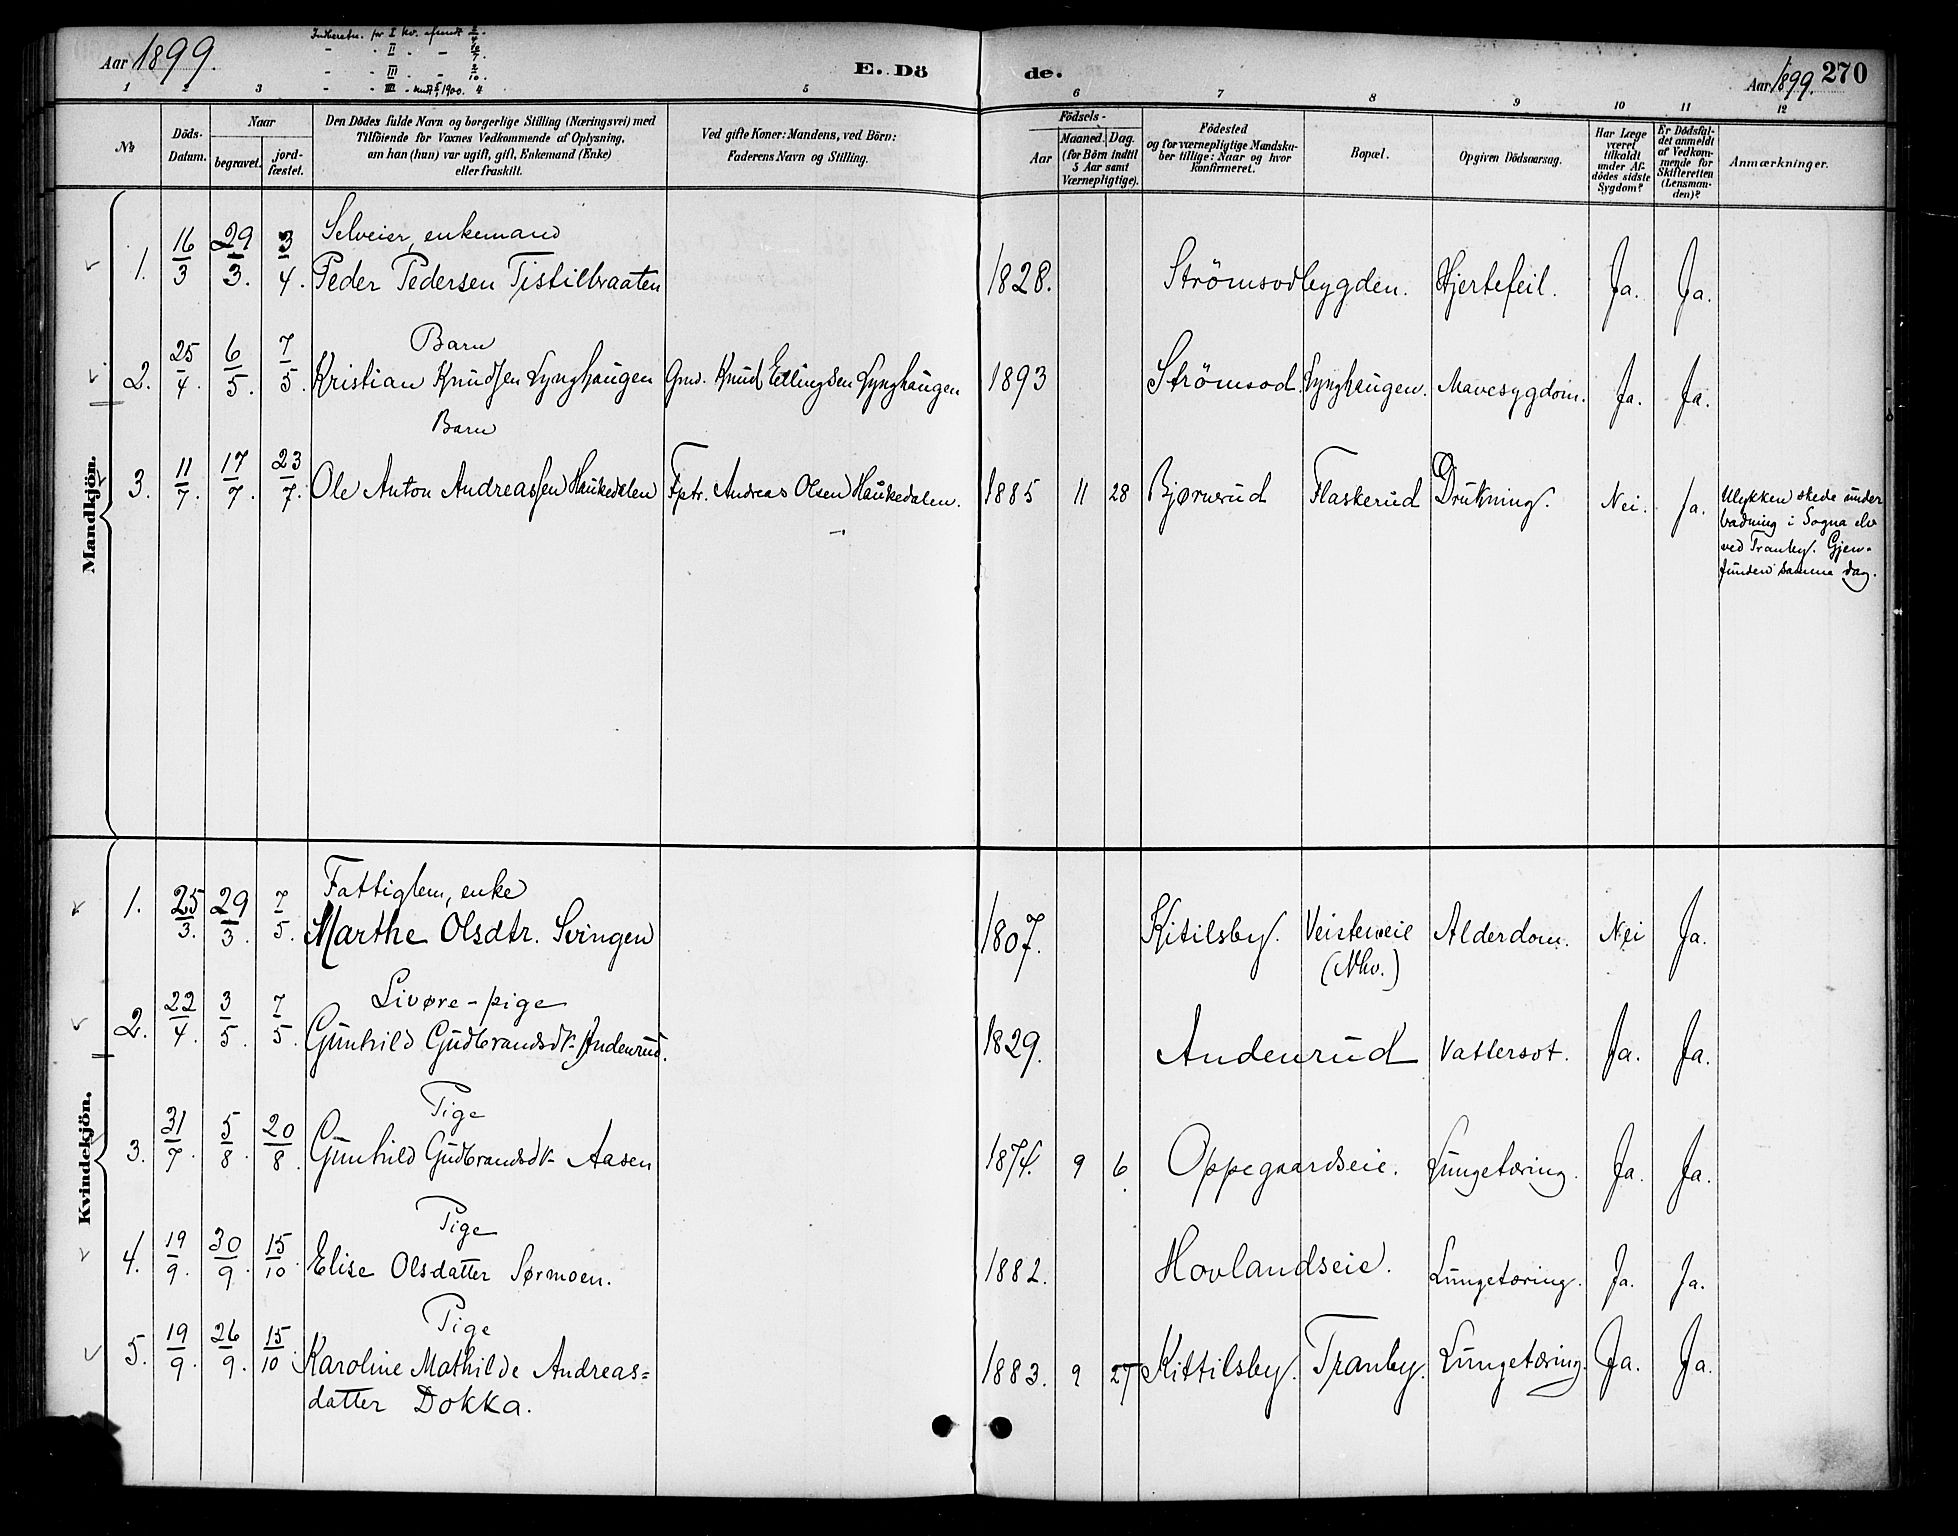 Aar 1899.
for I kv. afsendt
II
III
1900.
E. Döde.
Aar 1899. 270
1 2 3 5 6 7 8 9 10 11 12
№
Döds-Datum.
Naar
begravet.
jord-fæstet.
Den Dödes fulde Navn og borgerlige Stilling (Næringsvei) med
Tilföiende for Voxnes Vedkommende af Oplysning,
om han (hun) var ugift, gift, Enkemand (Enke)
eller fraskilt.
Ved gifte Koner: Mandens, ved Börn:
Faderens Navn og Stilling.
Födsels-
Aar
Maaned. Dag.
(for Börn indtil
5 Aar samt
Værnepligtige).
Födested
og for værnepligtige Mandska-
ber tillige: Naar og hvor
konfirmeret.
Bopæl.
Opgiven Dödsaarsag.
Har Læge
været
tilkaldt
under Af-
dödes sidste
Sygdom?
Er Dödsfal-
det anmeldt
af Vedkom-
mende for
Skifteretten
(Lensman-
den)?
Anmærkninger.
Mandkjön.
Selveier, enkemand
1. 16/3 29/3. 3/4. Peder Pedersen Tistilbraaten 1828. Strömsodbygden. Hjertefeil. Ja. Ja.
Barn
2. 25/4. 6/5. 7/5. Kristian Knudsen Lynghaugen Gmd. Knud Ellingsen Lynghaugen 1893 Strömsod. Lynghaugen. Mavesygdom. Ja. Ja.
Barn
3. 11/7. 17/7. 23/7. Ole Anton Andreassen Haukedalen Fptr. Andreas Olsen Haukedalen. 1885 11 28 Bjørnerud Flaskerud Drukning. Nei. Ja.
Ulykken skede under
badning i Sogna elv
ved Tranby. Gjen-
funden samme dag.
Kvindekjön.
Fattiglem, enke
1. 25/3. 29/3. 7/5. Marthe Olsdtr. Svingen 1807. Kitilsby. Veisteneie Alderdom. Nei Ja.
(Nhv.)
Livøre-pige
2. 22/4. 3/5. 7/5. Gunhild Gudbrandsdr. Andenrud. 1829. Andenrud Vattersot. Ja. Ja.
Pige
3. 31/7. 5/8. 20/8. Gunhild Gudbrandsdr. Aasen 1874. 9 6. Oppegaardseie. Lungetæring. Ja. Ja.
Pige
4. 19/9. 30/9. 15/10. Elise Olsdatter Sørmoen. 1882. Hovlandseie. Lungetæring. Ja. Ja.
Pige
5. 19/9. 26/9. 15/10. Karoline Mathilde Andreas= 1883. 9 27 Kittilsby. Tranby. Lungetæring. Ja. Ja.
datter Dokka.